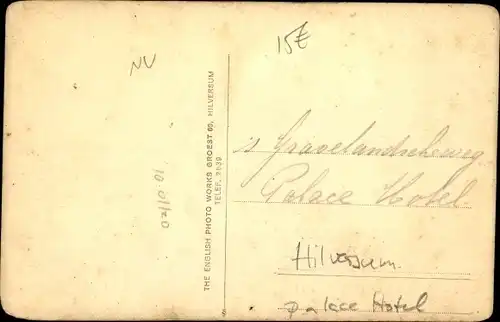 NV
15£
THE ENGLISH PHOTO WORKS GROEST 60, HILVERSUM
TELEF. 3939
's Gravelandscheweg
Palace Hotel.
Hilversum
palace Hotel